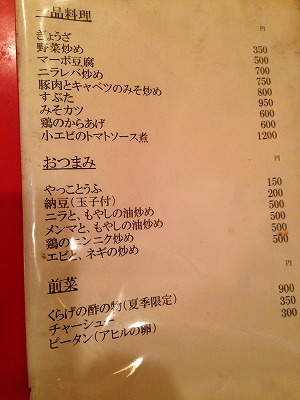 一品料理 円
ぎょうざ 350
野菜炒め 500
マーボ豆腐 700
ニラレバ炒め 750
豚肉とキャベツのみそ炒め 800
すぶた 950
みそカツ 600
鶏のからあげ 600
小エビのトマトソース煮 1200
おつまみ 円
やっことうふ 150
納豆(玉子付) 200
ニラと、もやしの油炒め 500
メンマと、もやしの油炒め 500
鶏のニンニク炒め 500
エビと、ネギの炒め 500
前菜 円
くらげの酢の物(夏季限定) 900
チャーシュー 350
ピータン(アヒルの卵) 300